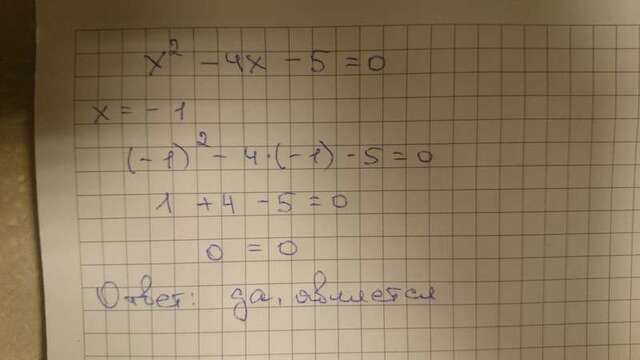 x² - 4x - 5 = 0
x = - 1
(-1)² - 4·(-1) - 5 = 0
1 + 4 - 5 = 0
0 = 0
Ответ: да, является